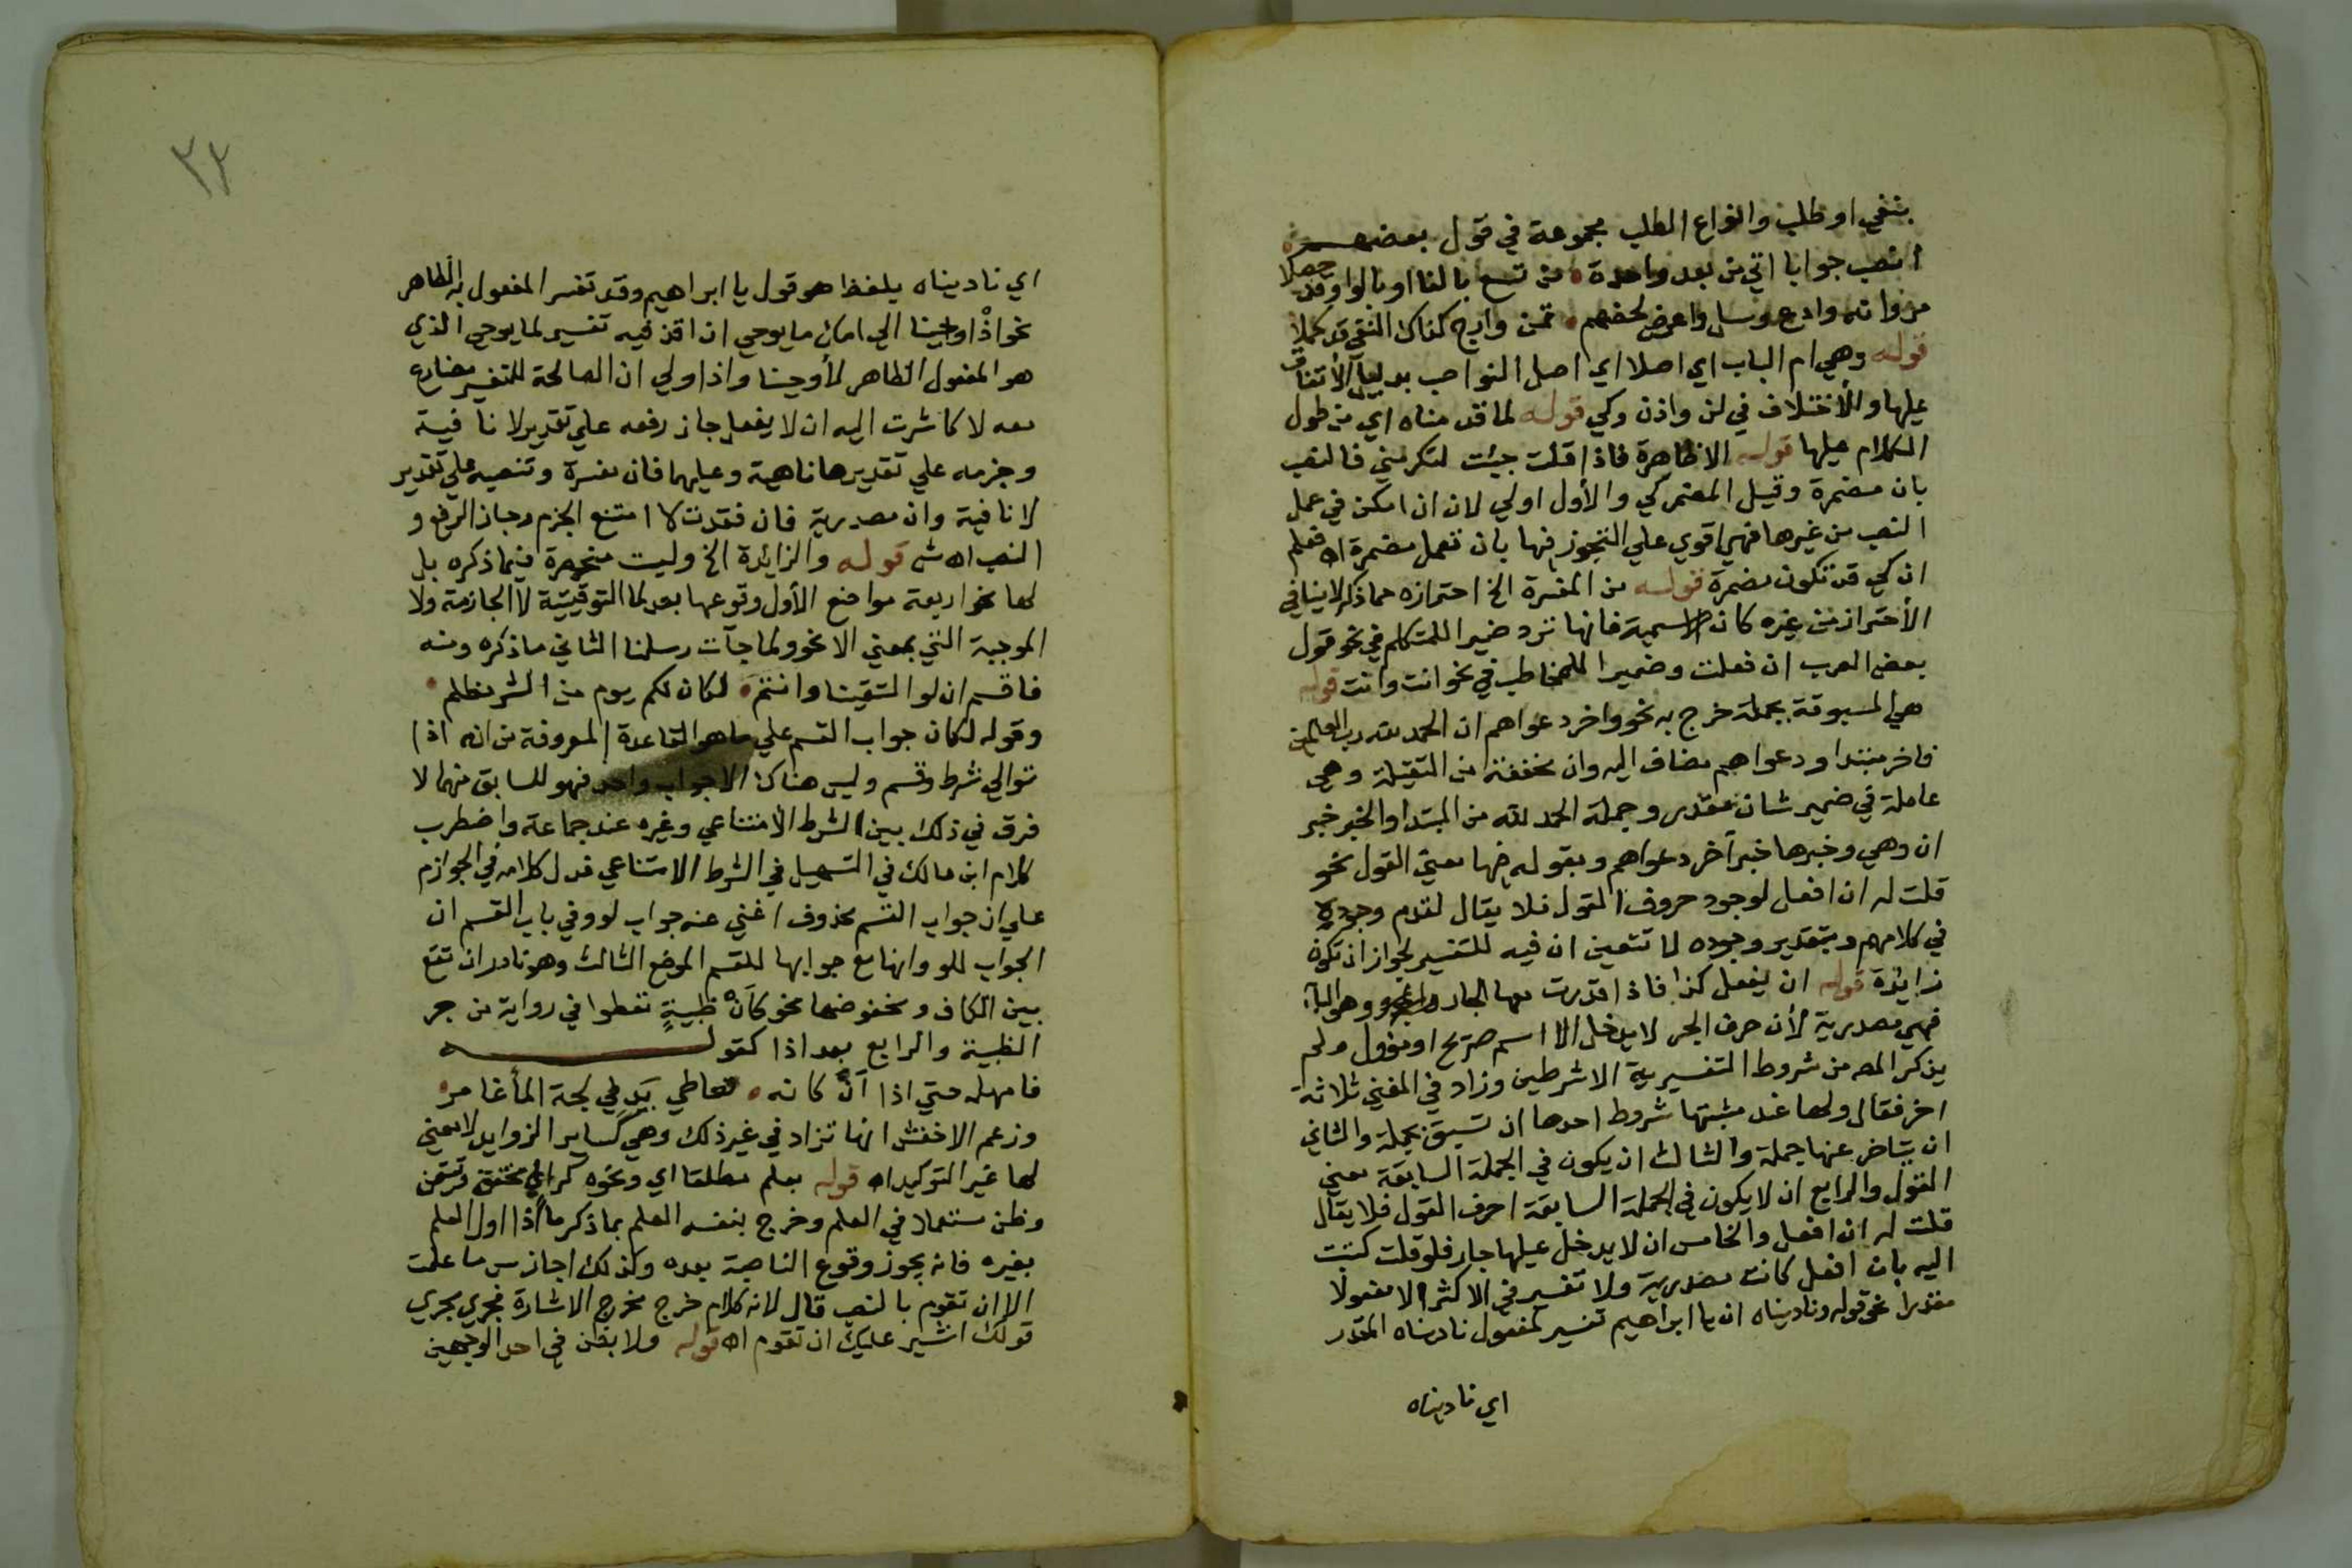 بنفي او طلب وانواع الطلب مجموعة في قول بعضهم
انصب جوابا اتي من بعد واحدة من تسع بالفا او بالواو قد حصلا
مر وانه وادع وسل واعرض لحضهم تمن وارج كذاك النفي قد كملا
قوله وهي ام الباب اي اصلا اي اصل النواصب بدليل الأتفاق
عليها والأختلاف في لن واذن وكي قوله لما قدمناه اي من طول
الكلام عليها قوله الاظاهرة فاذا قلت جيئت لتكرمني فالنصب
بان مضمرة وقيل المضمر كي والأول اولي لان ان امكن في عمل
النصب من غيرها فهي اقوي علي التجوز فيها بان تعمل مضمرة اه فعلم
ان كي قد تكون مضمرة قوله من المفسرة الخ احترازه مما ذكر لا ينافي
الأحتراز من غيره كان الاسمية فانها ترد ضميرا للمتكلم في نحو قول
بعض العرب ان فعلت وضميرا للمخاطب في نحو انت وانت قوله
هي المسبوقة بجملة خرج به نحو واخر دعواهم ان الحمد لله رب العالمين
فاخر مبتدا ودعواهم مضاف اليه وان مخففة من الثقيلة وهي
عاملة في ضمير شان مقدر وجملة الحمد لله من المبتدا والخبر خبر
ان وهي وخبرها خبر آخر دعواهم وبقوله فيها معني القول نحو
قلت له ان افعل لوجود حروف القول فلا يقال لعدم وجوده
في كلامهم وبتقدير وجوده لا تتعين ان فيه للتفسير لجواز ان تكون
زايدة قوله ان يفعل كذا فاذا قدرت معها الجار وهو الباء
فهي مصدرية لأن حرف الجر لا يدخل الا اسم صريح او مؤول ولم
يذكر المص من شروط التفسيرية الا شرطين وزاد في المغني ثلاثة
اخر فقال ولها عند مثبتها شروط احدها ان تسبق بجملة والثاني
ان يتاخر عنها جملة والثالث ان يكون في الجملة السابقة معني
القول والرابع ان لا يكون في الجملة السابقة احرف القول فلا يقال
قلت له ان افعل والخامس ان لا يدخل عليها جار فلو قلت كتبت
اليه بان افعل كانت مصدرية ولا تفسير في الاكثر الا مفعولا
مقدرا نحو قوله وناديناه ان يا ابراهيم تفسير لمفعول ناديناه المقدر
اي ناديناه
٣٢
اي ناديناه بلفظ هو قول يا ابراهيم وقد تفسر المفعول به الظاهر
نحو اذ اوحينا الي امك ما يوحي ان اقذفيه تفسير لما يوحي الذي
هو المفعول الظاهر لأوحينا واذا ولي ان الصالحة للتفسير مضارع
معه لا كاشرت اليه ان لا يفعل جاز رفعه علي تقدير لا نافية
وجزمه علي تقديرها ناهية وعليهما فان مفسرة وتنصبه علي تقدير
لا نافية وان مصدرية فان فقدت لا امتنع الجزم وجاز الرفع و
النصب اه ش قوله والزايدة الخ وليست منحصرة فيما ذكره بل
لها نحو اربعة مواضع الأول وقوعها بعد لما التوقيتية لا الجازمة ولا
الموجبة التي بمعني الا نحو ولما جآت رسلنا الثاني ما ذكره ومنه
فاقسم ان لو التقينا وانتم لكان لكم يوم من الشر مظلم
وقوله لكان جواب القسم علي ما هو القاعدة المعروفة من انه اذا
توالي شرط وقسم وليس هناك الا جواب واحد فهو للسابق منهما لا
فرق في ذلك بين الشرط الأمتناعي وغيره عند جماعة واضطرب
كلام ابن مالك في التسهيل في الشرط الامتناعي فدل كلامه في الجوازم
علي ان جواب القسم محذوف اغني عنه جواب لو وفي باب القسم ان
الجواب للو وانها مع جوابها للقسم الموضع الثالث وهو نادر ان تقع
بين الكاف ومخفوضها نحو كأن ظبيةٍ تعطوا في رواية من جر
الظبية والرابع بعد اذا كقوله
فامهله حتي اذا أن كانه معاطي يَدٍ في لجة المأ غامر
وزعم الاخفش انها تزاد في غير ذلك وهي كساير الزوايد لا معني
لها غير التوكيد اه قوله بعلم مطلقا اي ونحوه كراي محقق وتيقن
وظن مستعملا في العلم وخرج بنفسه العلم بما ذكر ما اذا اول العلم
بغيره فانه يجوز وقوع الناصبة بعده وكذلك اجاز س ما علمت
الا ان تقوم بالنصب قال لانه كلام خرج مخرج الاشارة فجري مجري
قولك اشير عليك ان تقوم اه قوله ولا بظن في احد الوجهين